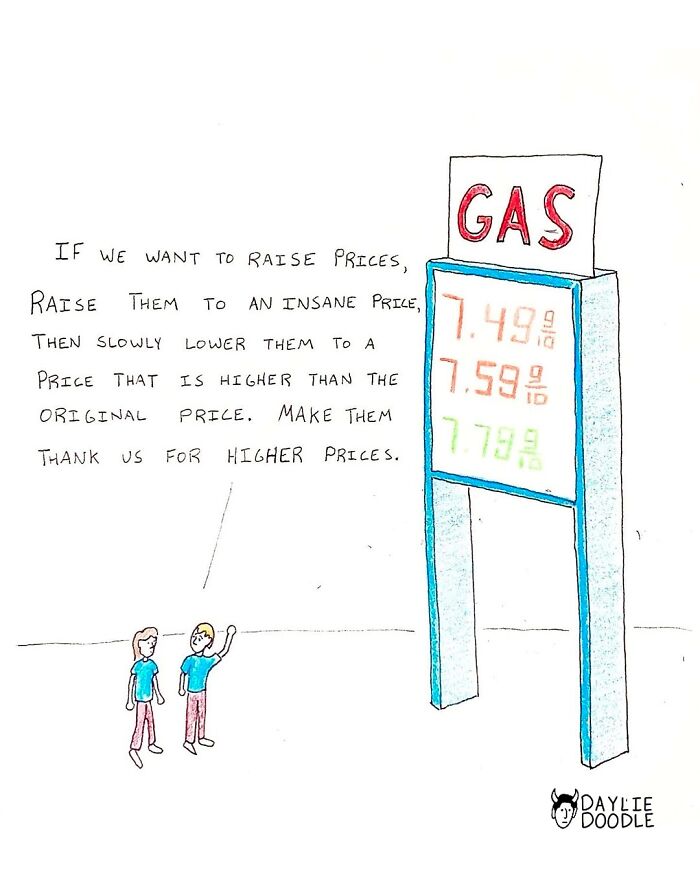 GAS
IF WE WANT TO RAISE PRICES,
RAISE THEM TO AN INSANE PRICE,
THEN SLOWLY LOWER THEM TO A
PRICE THAT IS HIGHER THAN THE
ORIGINAL PRICE. MAKE THEM
THANK US FOR HIGHER PRICES.
7.49 9/10
7.59 9/10
7.79 9/10
DAYLIE
DOODLE